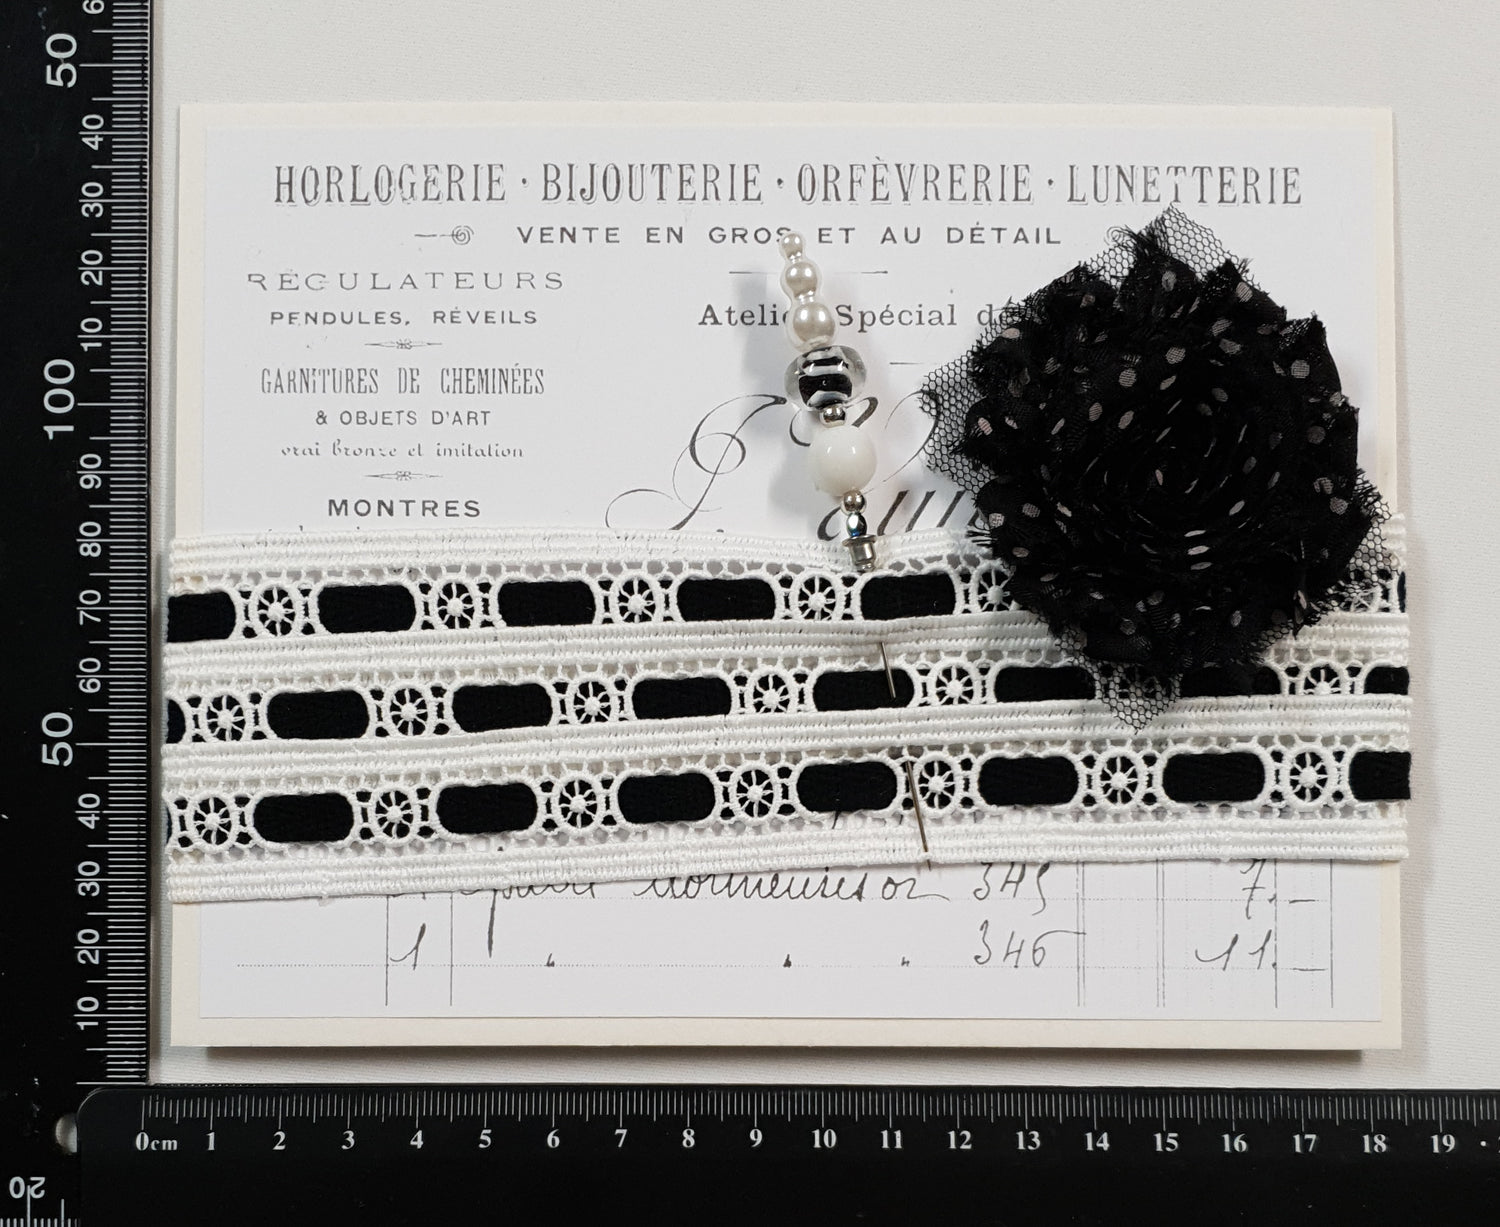 HORLOGERIE · BIJOUTERIE · ORFÈVRERIE · LUNETTERIE
VENTE EN GROS ET AU DÉTAIL
RÉGULATEURS
PENDULES, RÉVEILS
GARNITURES DE CHEMINÉES
& OBJETS D'ART
vrai bronze et imitation
MONTRES
Spécial
J.
or 345 7.—
1 " " " 346 11.—
60
50
40
30
20
10
100
90
80
70
60
50
40
30
20
10
0cm 1 2 3 4 5 6 7 8 9 10 11 12 13 14 15 16 17 18 19
20